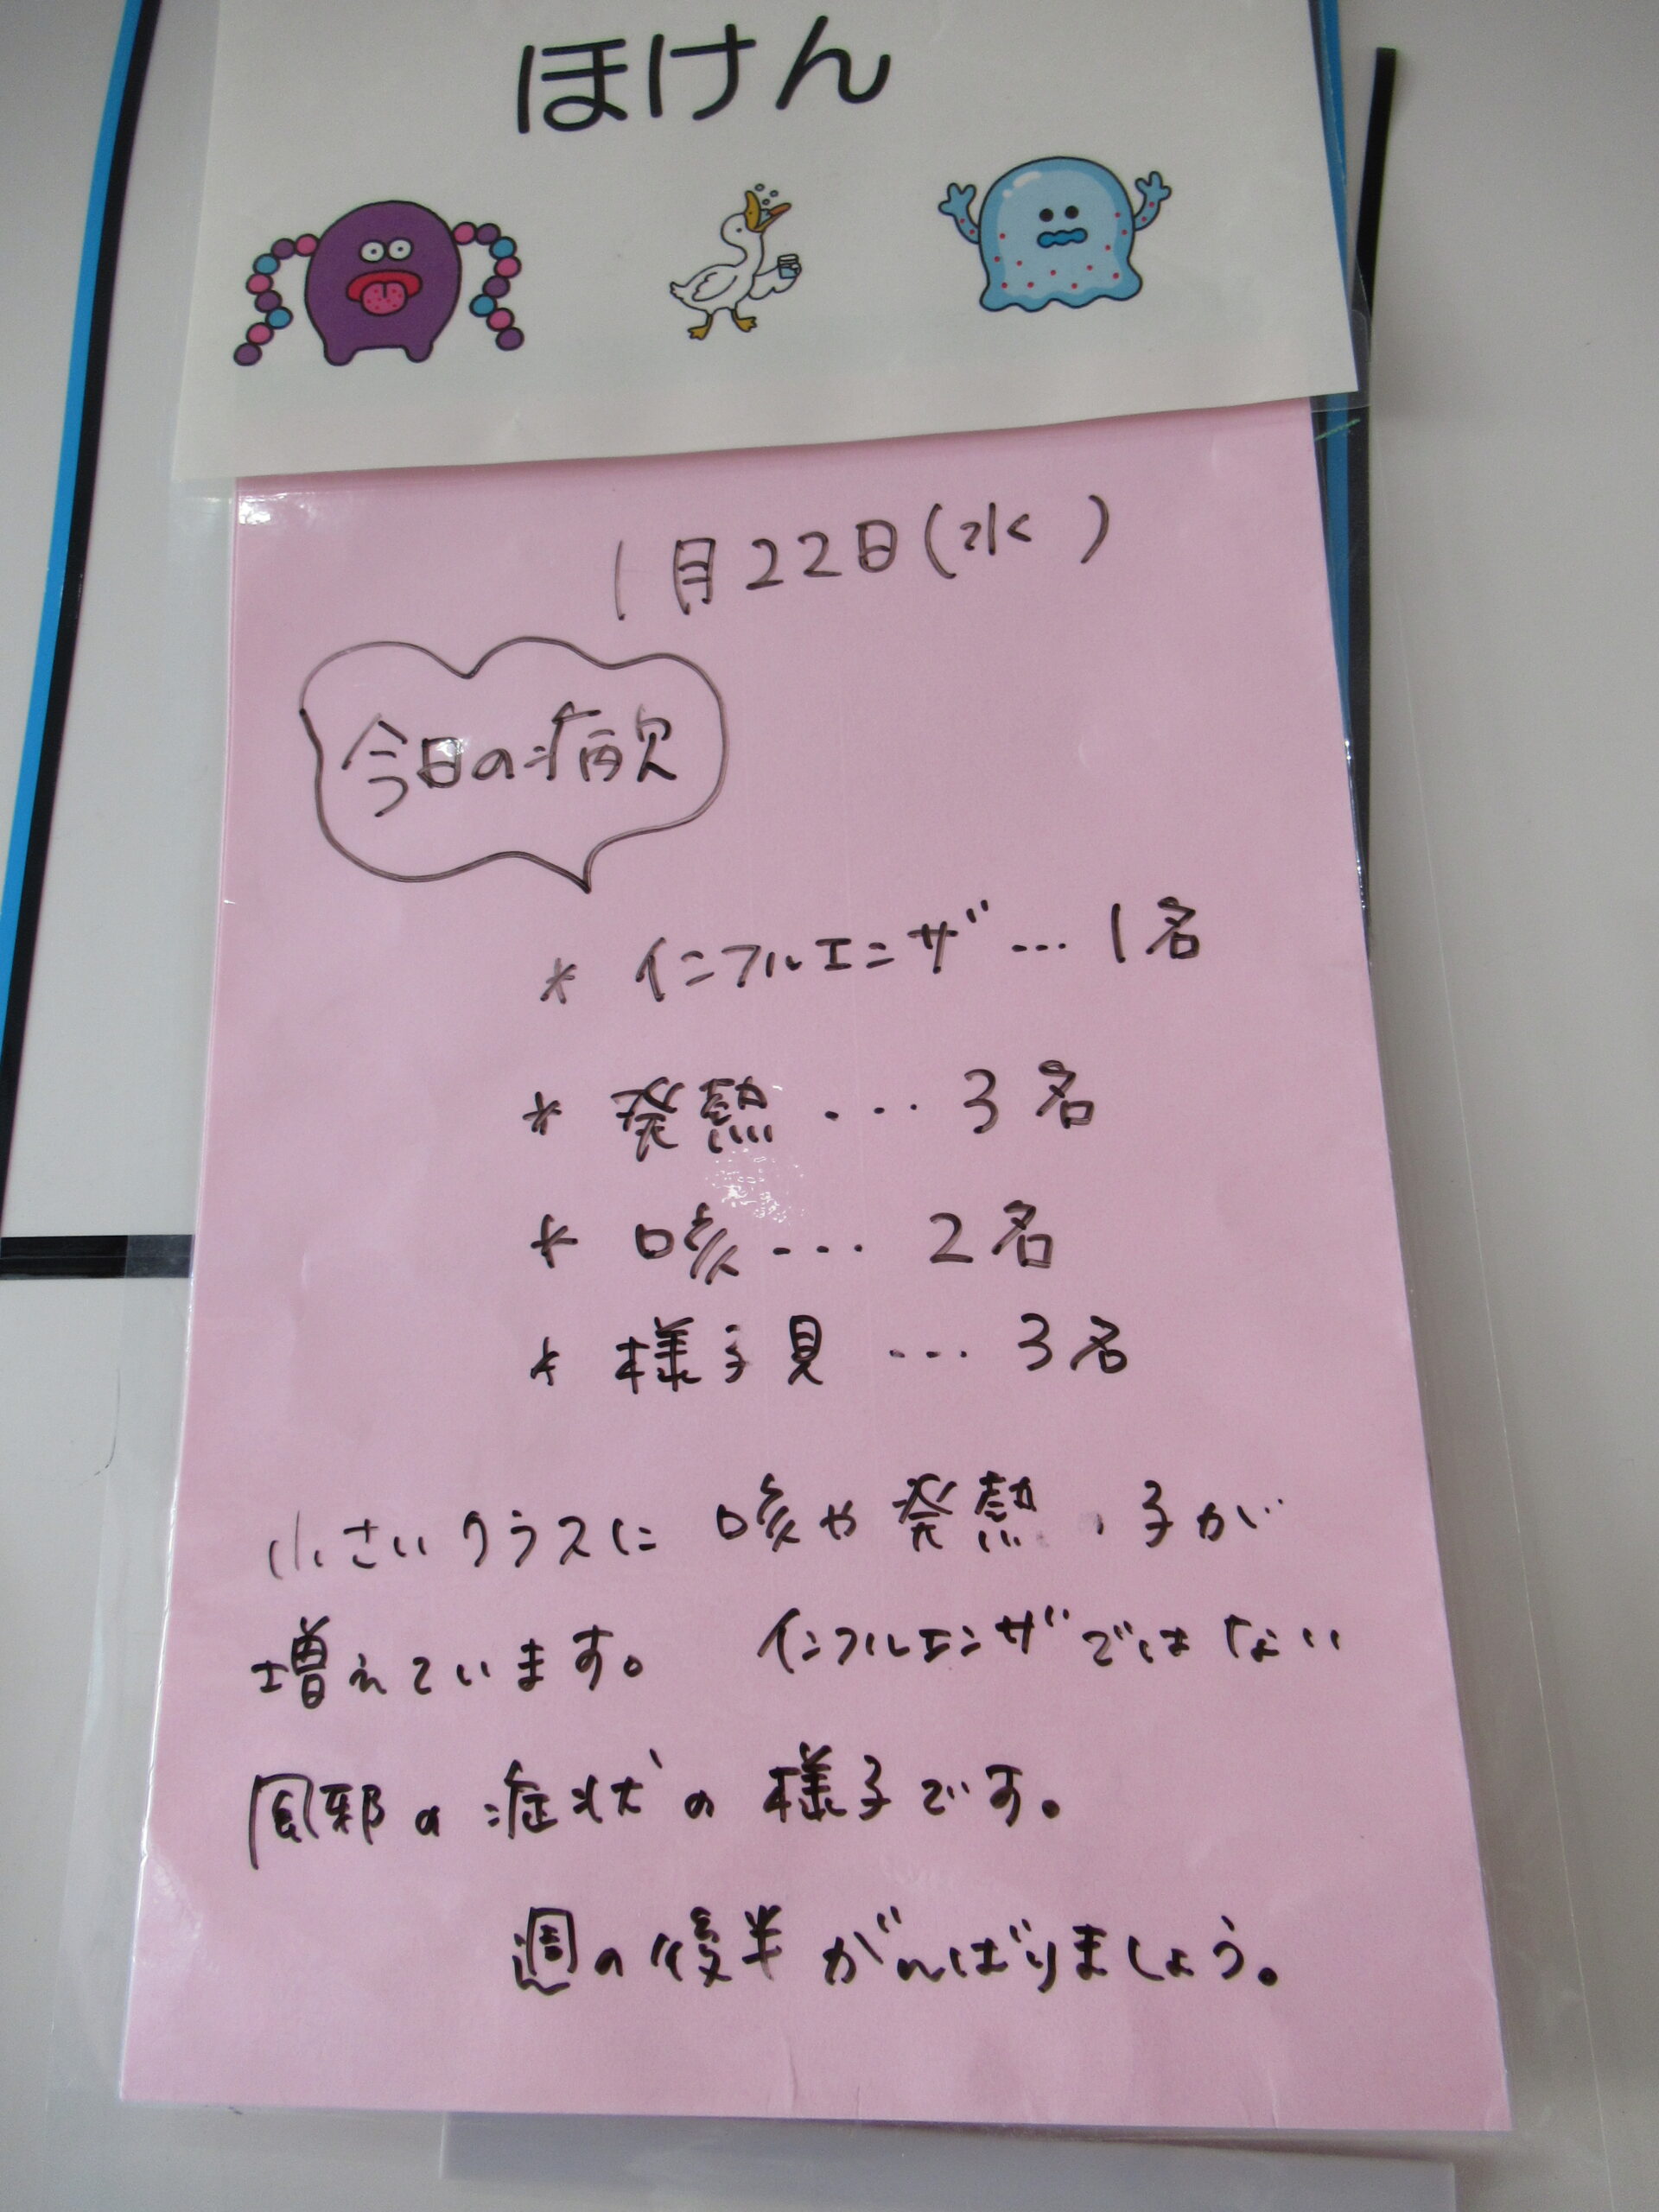 ほけん
1月22日(水)
今日の病欠
* インフルエンザ… 1名
* 発熱 … 3名
* 咳 … 2名
* 様子見 … 3名
小さいクラスに 咳や発熱、子が
増えています。 インフルエンザではない
風邪の症状の様子です。
週の後半がんばりましょう。